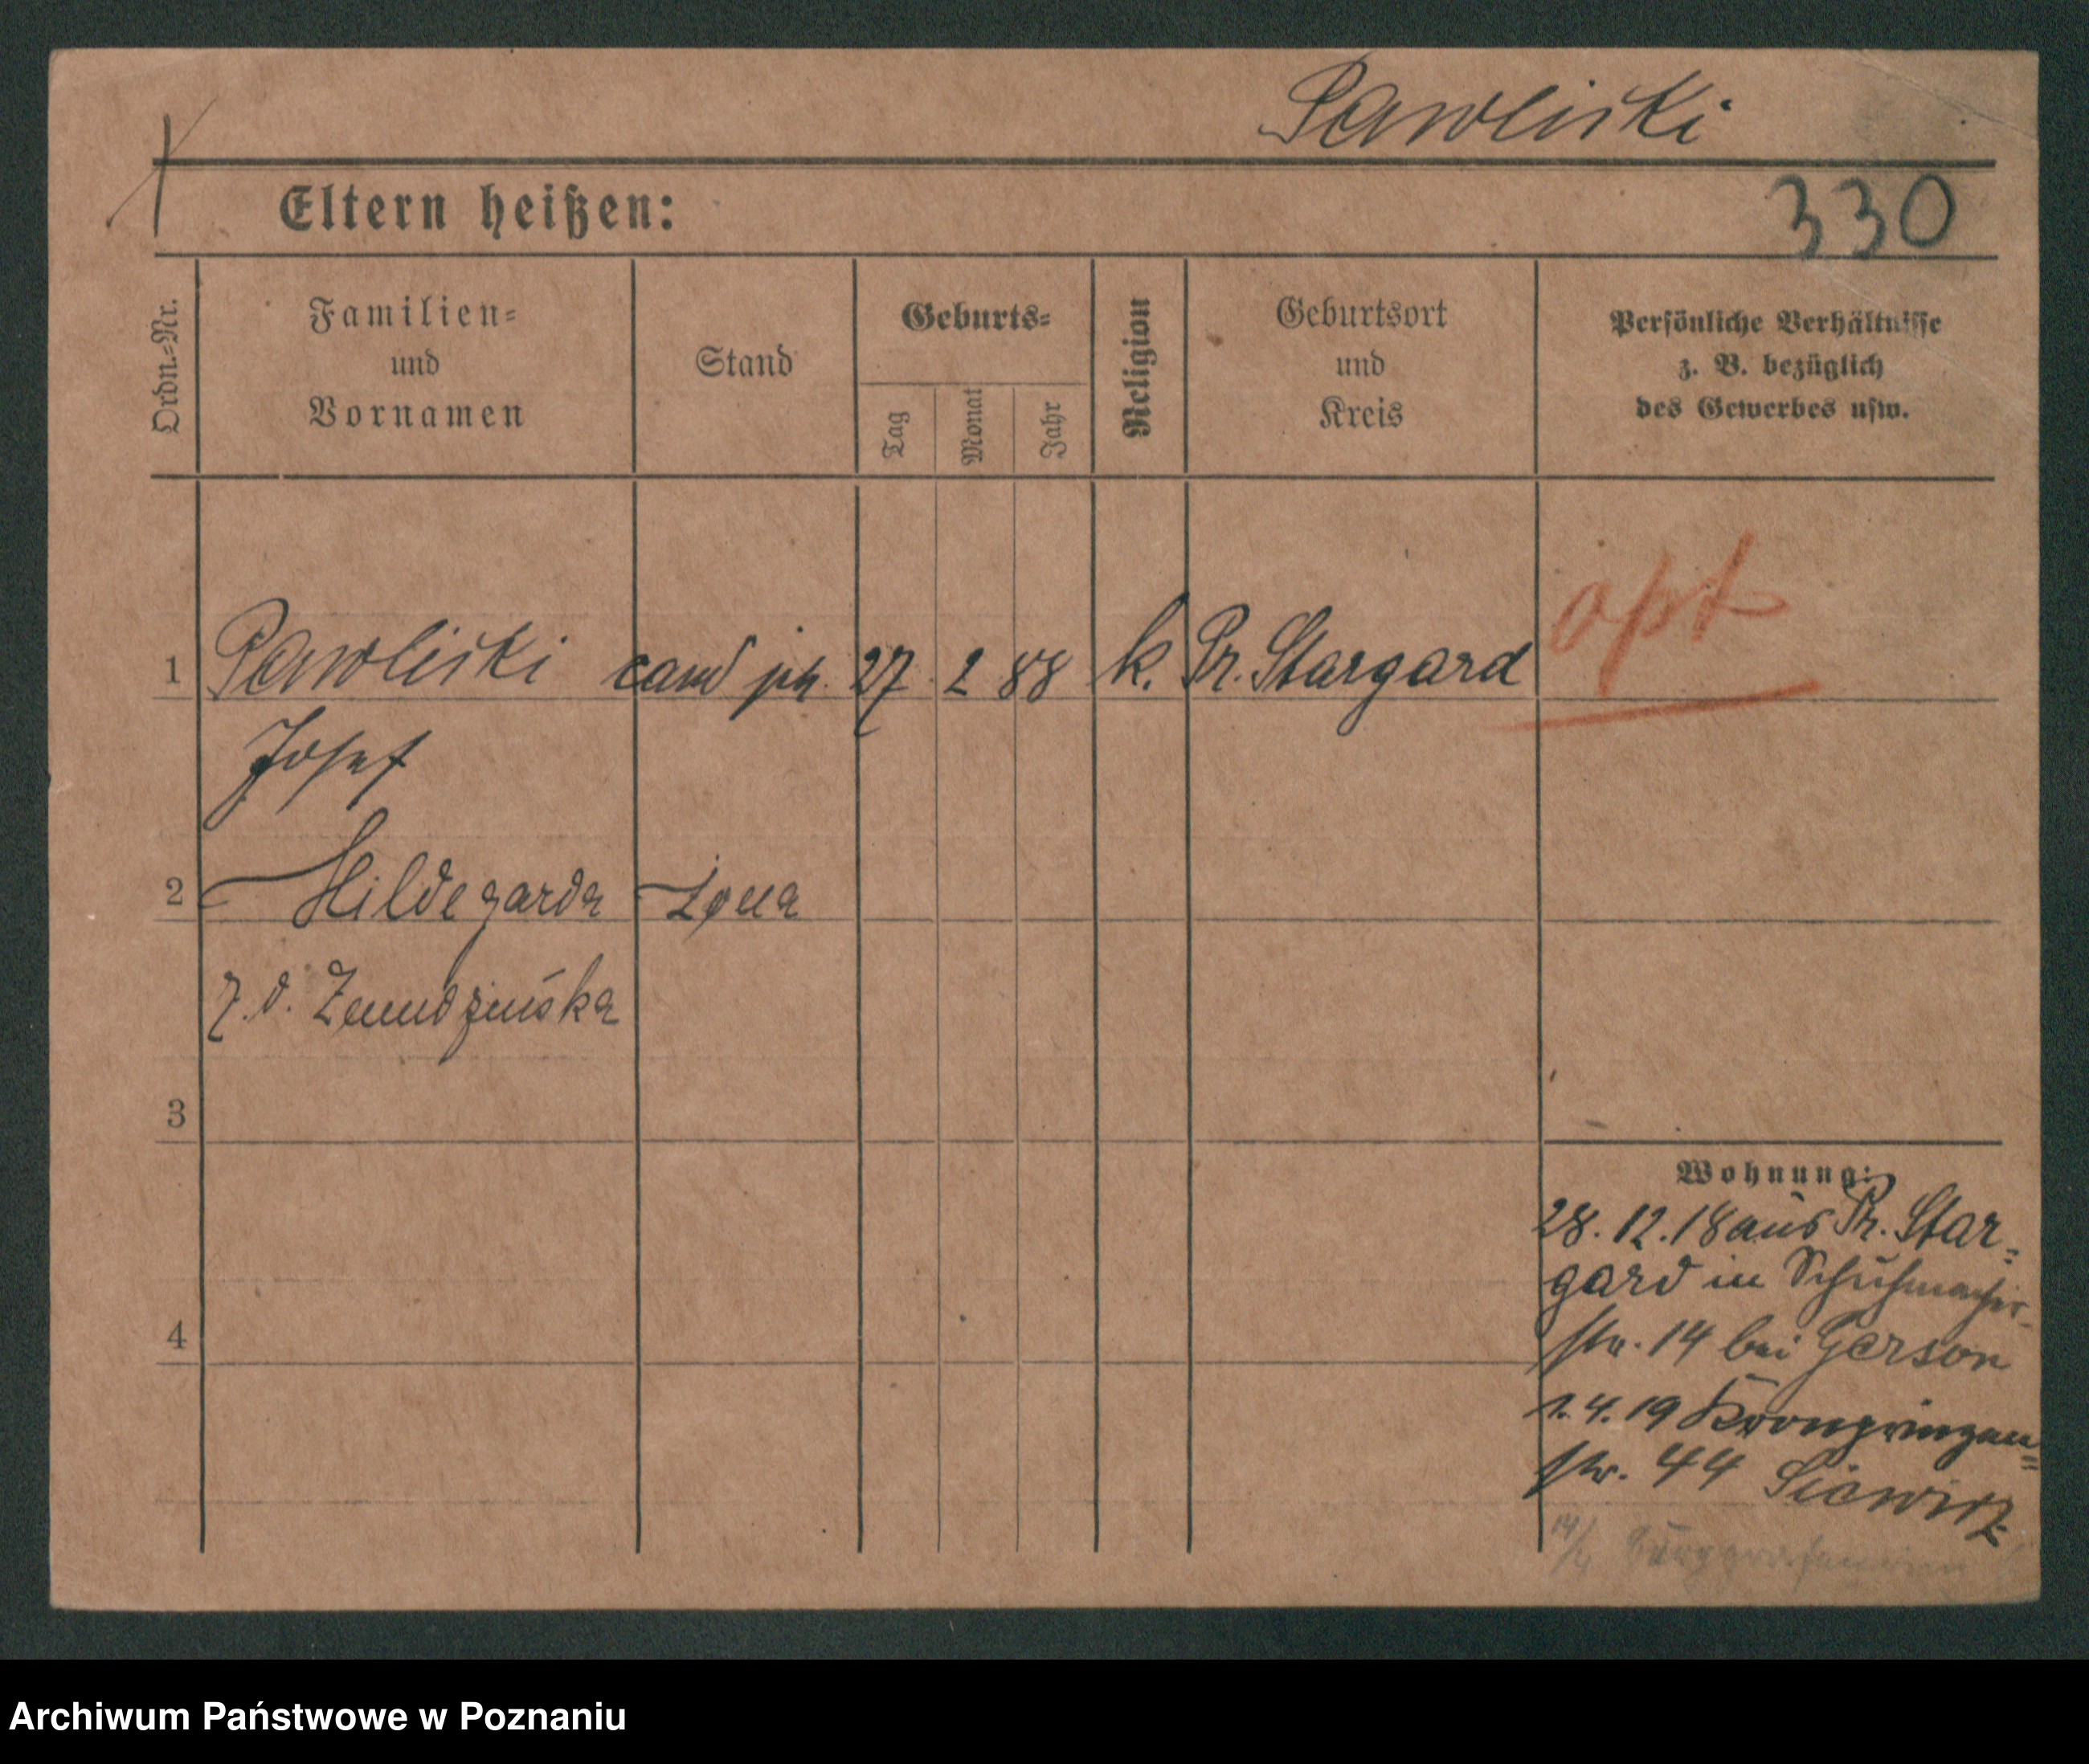 Pawliski
Eltern heißen:
330
Ordn.-Nr.
Familien-
und
Vornamen
Stand
Geburts-
Tag
Monat
Jahr
Religion
Geburtsort
und
Kreis
Persönliche Verhältnisse
z. B. bezüglich
des Gewerbes usw.
1 Pawliski cand ph. 27. 2 88 k. Pr. Stargard
opt
Josef
2 Hildegarda żona
z. d.
3
Wohnung:
28. 12. 18 aus Pr. Star-
gard in Schuhmacher-
4
str. 14 bei Gerson
1. 4. 19 Kronprinzen=
str. 44
Archiwum Państwowe w Poznaniu